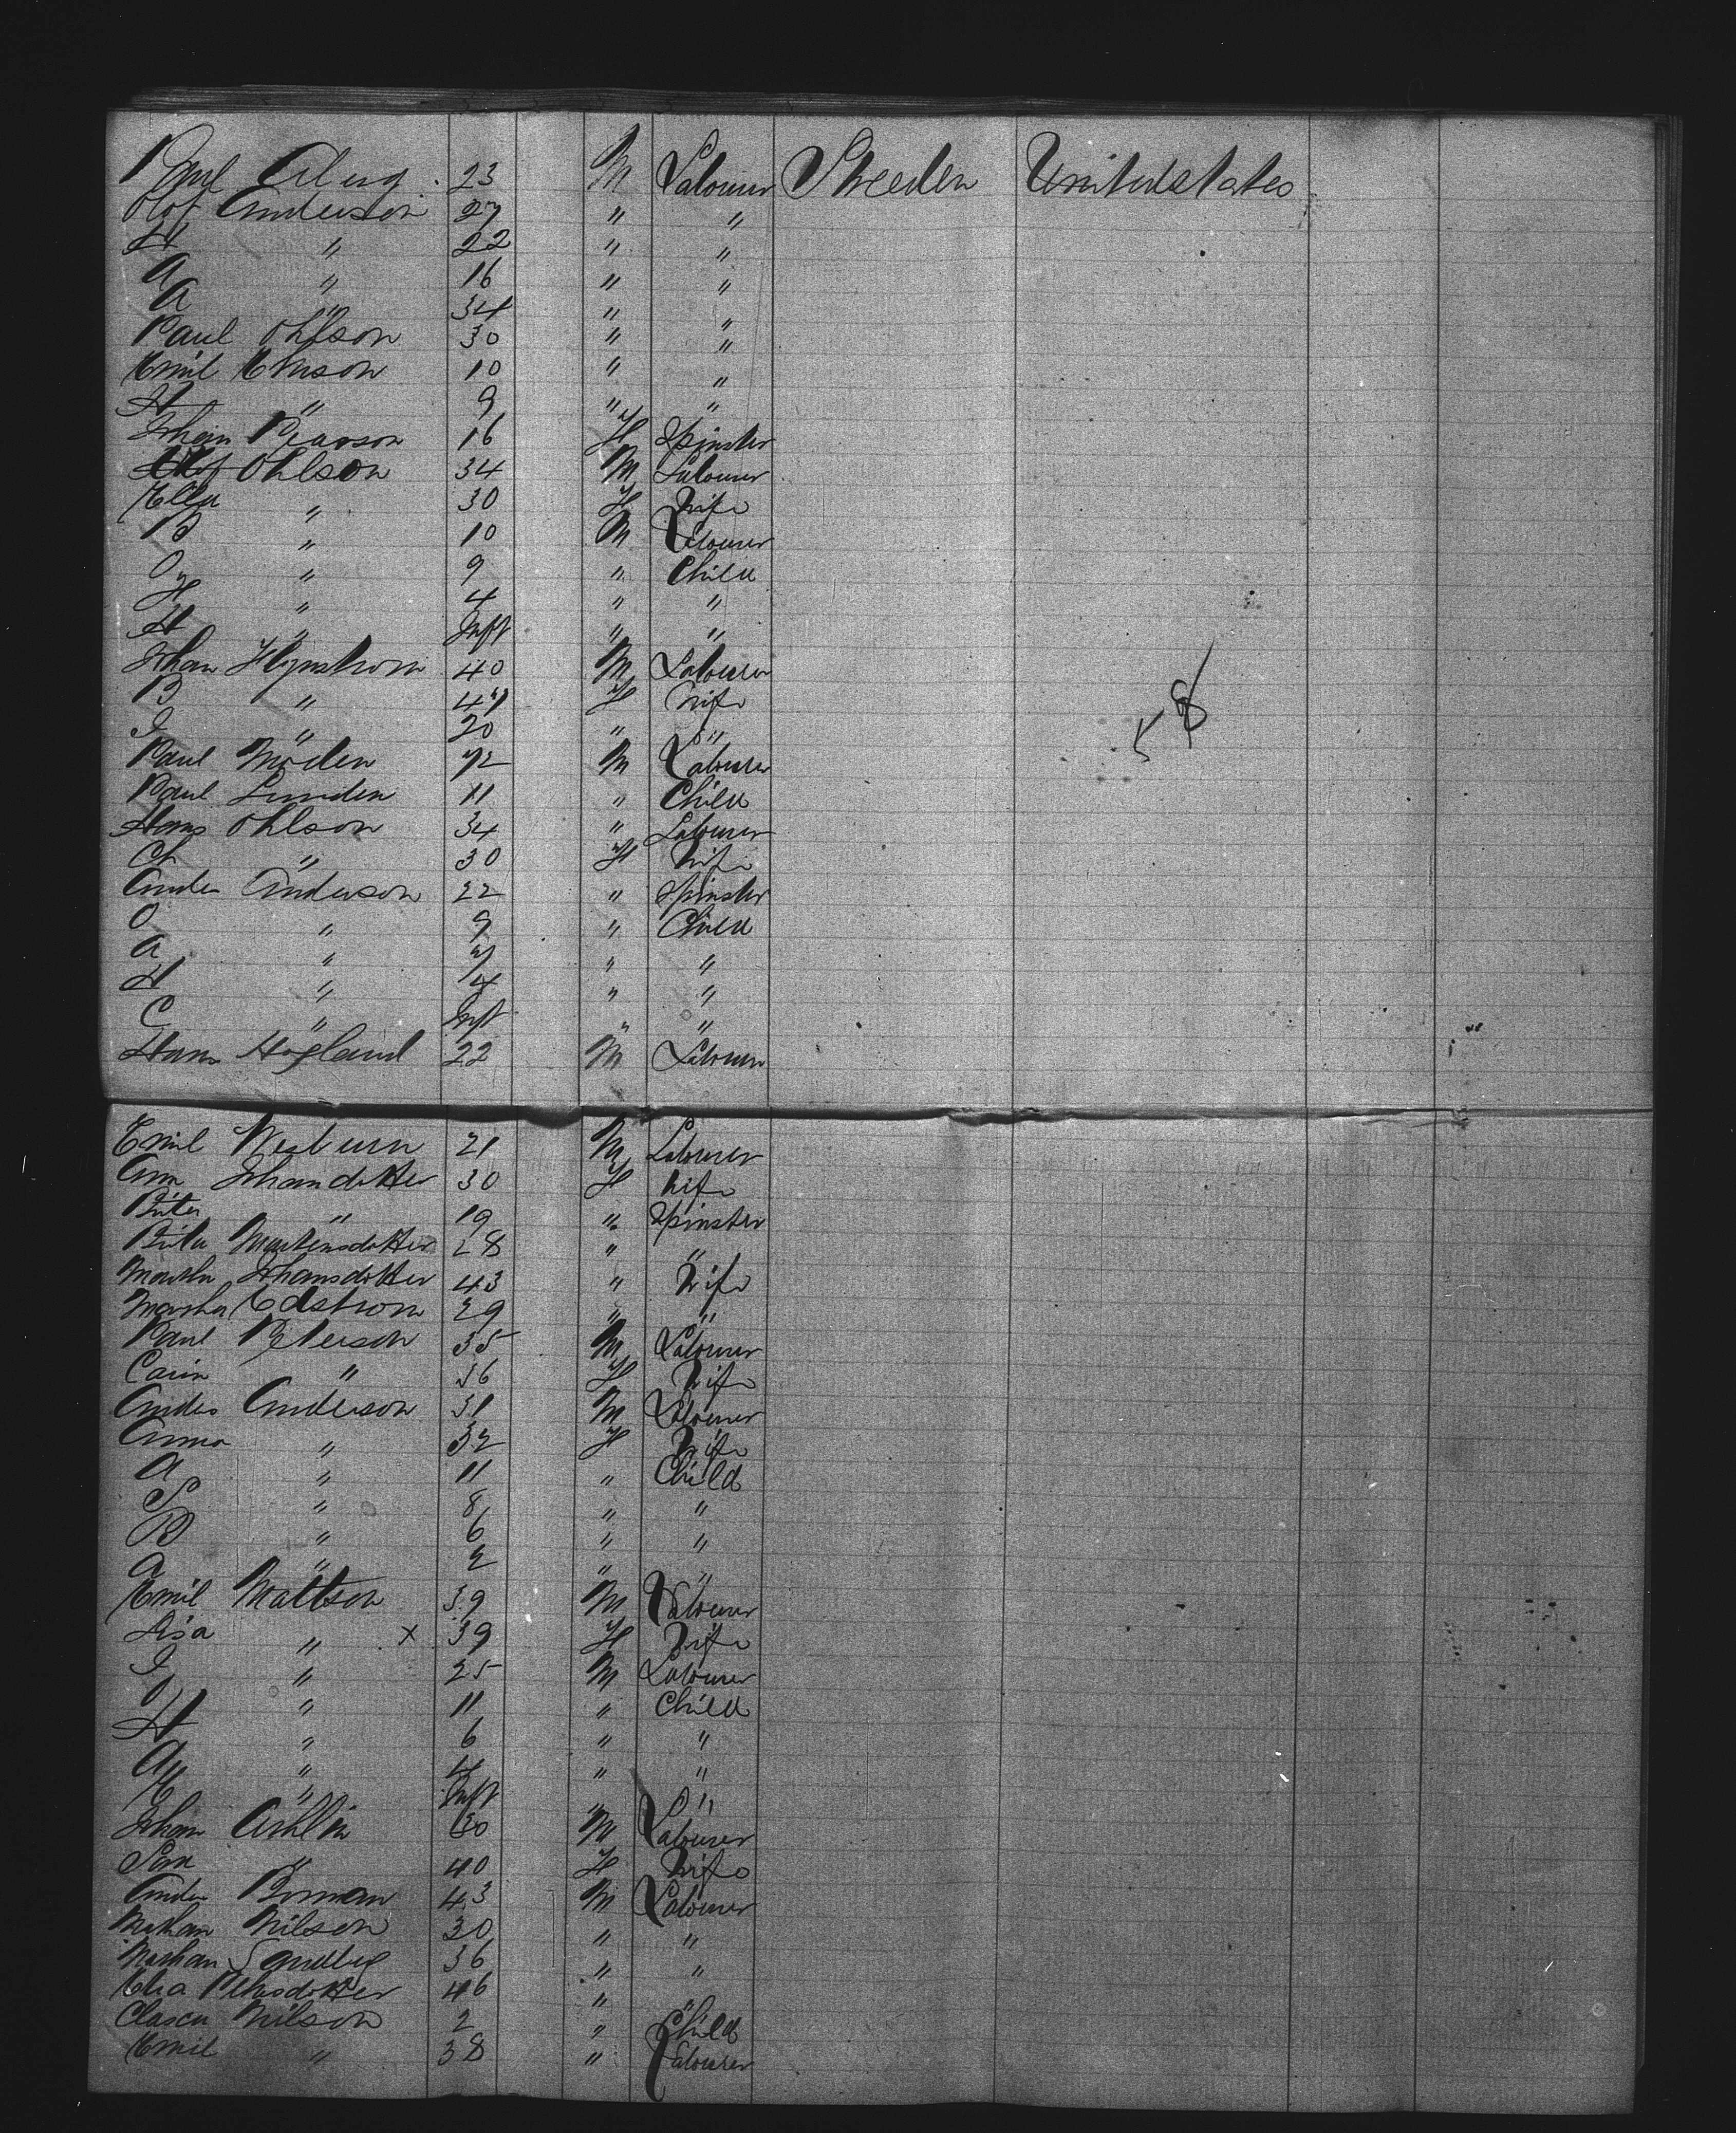 Carl Aug. 23 M Labourer Sweden United states
Olof Anderson 27 " "
H " 22 " "
A " 16 " "
A " 34 " "
Paul Ohlson 30 " "
Emil Ericson 10 " "
H " 9 " "
Johan Pearson 16 F Spinster
Olof Ohlson 34 M Labourer
Ella " 30 F Wife
B " 10 M Labourer
O " 9 " Child
F " 4 " "
H " Inft " "
Johan 40 M Labourer
B " 47 F Wife
I " 20 " "
Paul Moden 72 M Labourer
Paul Lunden 11 " Child
Hans Ohlson 34 " Labourer
Ch " 30 F Wife
Ander Anderson 22 " Spinster
O " 9 " Child
A " 7 " "
H " 4 " "
C " Inft " "
Hans Hogland 22 M Labourer
58
Emil 21 M Labourer
Ann Johandotter 30 F Wife
Brita " 19 " Spinster
Brita Martensdotter 28 " "
Martha Johansdotter 43 " Wife
Martha Edstrom 29 " "
Paul Peterson 35 M Labourer
Carin " 36 F Wife
Andes Anderson 31 M Labourer
Anna " 32 F Wife
A " 11 " Child
S " 8 " "
B " 6 " "
A " 2 " "
Emil Mattson 39 M Labourer
Lisa " x 39 F Wife
I " 25 M Labourer
O " 11 " Child
H " 6 " "
A " 4 " "
E " Inft " "
Johan Ashlin 30 M Labourer
" 40 F Wife
Ander Boman 43 M Labourer
Nilson 30 " "
Sandberg 36 " "
Pehrsdotter 46 " "
Nilson 2 " Child
Emil " 38 " Labourer